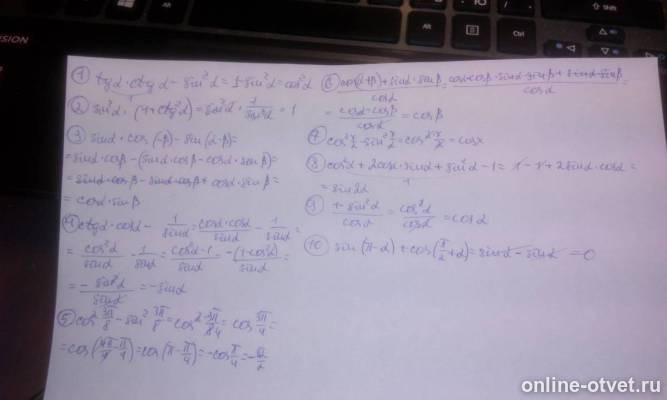 ① tgα·ctgα − sin²α = 1 − sin²α = cos²α
② sin²α·(1+ctg²α) = sin²α · 1/sin²α = 1
③ sinα·cos(−β) − sin(α−β) =
= sinα·cosβ − (sinα·cosβ − cosα·sinβ) =
= sinα·cosβ − sinα·cosβ + cosα·sinβ =
= cosα·sinβ
④ ctgα·cosα − 1/sinα = cosα·cosα/sinα − 1/sinα =
= cos²α/sinα − 1/sinα = cos²α−1/sinα = −(1−cos²α)/sinα =
= −sin²α/sinα = −sinα
⑤ cos² 3π/8 − sin² 3π/8 = cos 2·3π/84 = cos 3π/4 =
= cos(4π−π/4) = cos(π−π/4) = −cos π/4 = −√2/2
⑥ cos(α+β)+sinα·sinβ/cosα = cosα·cosβ−sinα·sinβ+sinα·sinβ/cosα =
= cosα·cosβ/cosα = cosβ
⑦ cos² x/2 − sin² x/2 = cos 2·x/2 = cosx
⑧ cos²α + 2cosα·sinα + sin²α − 1 = 1 − 1 + 2sinα·cosα =
= sin2α
⑨ 1−sin²α/cosα = cos²α/cosα = cosα
⑩ sin(π−α) + cos(π/2+α) = sinα − sinα = 0
online-otvet.ru